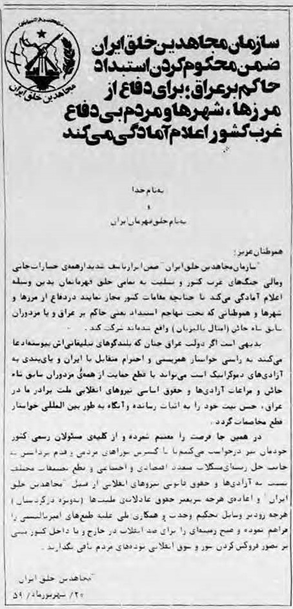 سازمان مجاهدین خلق ایران
ضمن محکوم کردن استبداد
حاکم بر عراق؛ برای دفاع از
مرزها، شهرها و مردم بی‌دفاع
غرب کشور اعلام آمادگی می‌کند
به‌نام خدا
و
به‌نام خلق قهرمان ایران
هموطنان عزیز:
"سازمان مجاهدین خلق ایران" ضمن ابراز تاسف شدید از همه‌ی خسارات جانی
و مالی جنگ‌های غرب کشور و تسلیت به تمامی خلق قهرمانمان بدین وسیله
اعلام آمادگی می‌کند تا چنانچه مقامات کشور مجاز نمایند در دفاع از مرزها و
شهرها و هموطنانی که تحت تهاجم استبداد بعثی حاکم بر عراق و یا مزدوران
سابق شاه خائن (امثال پالیزبان) واقع شده‌اند شرکت کند.
بدیهی است اگر دولت عراق چنان که بلندگوهای تبلیغاتی‌اش پیوسته ادعا
می‌کند به راستی خواستار همزیستی و احترام متقابل با ایران و پای‌بندی به
آزادی‌های دموکراتیک است می‌تواند با قطع حمایت از همه‌ی مزدوران سابق شاه
خائن و مراعات آزادی‌ها و حقوق اساسی نیروهای انقلابی ملت برادر ما در
عراق، حسن نیت خود را به اثبات رسانده و آنگاه به طور بین المللی خواستار
قطع مخاصمات گردد.
در همین جا فرصت را مغتنم شمرده و از کلیه‌ی مسئولان رسمی کشور
خودمان نیز درخواست می‌کنیم تا با گسترش شوراهای مردمی و قدم برداشتن به
جانب حل ریشه‌ای مشکلات متعدد اقتصادی و اجتماعی و قطع تضییقات مختلف
نسبت به آزادی‌ها و حقوق قانونی نیروهای انقلابی از قبیل "مجاهدین خلق
ایران" و اعاده‌ی هرچه سریعتر حقوق عادلانه‌ی ملیت‌ها (به‌ویژه در کردستان)
هرچه زودتر وسایل تحکیم وحدت و همکاری ملی علیه طمع‌های امپریالیستی را
فراهم نموده و هیچ زمینه‌ای را برای ضد انقلاب در خارج و یا داخل کشور مبنی
بر تصور فروکش کردن شور و شوق انقلابی توده‌های مردم باقی نگذارند.
"مجاهدین خلق ایران"
۲۰/ شهریورماه/ ۵۹
مجاهدین خلق ایران